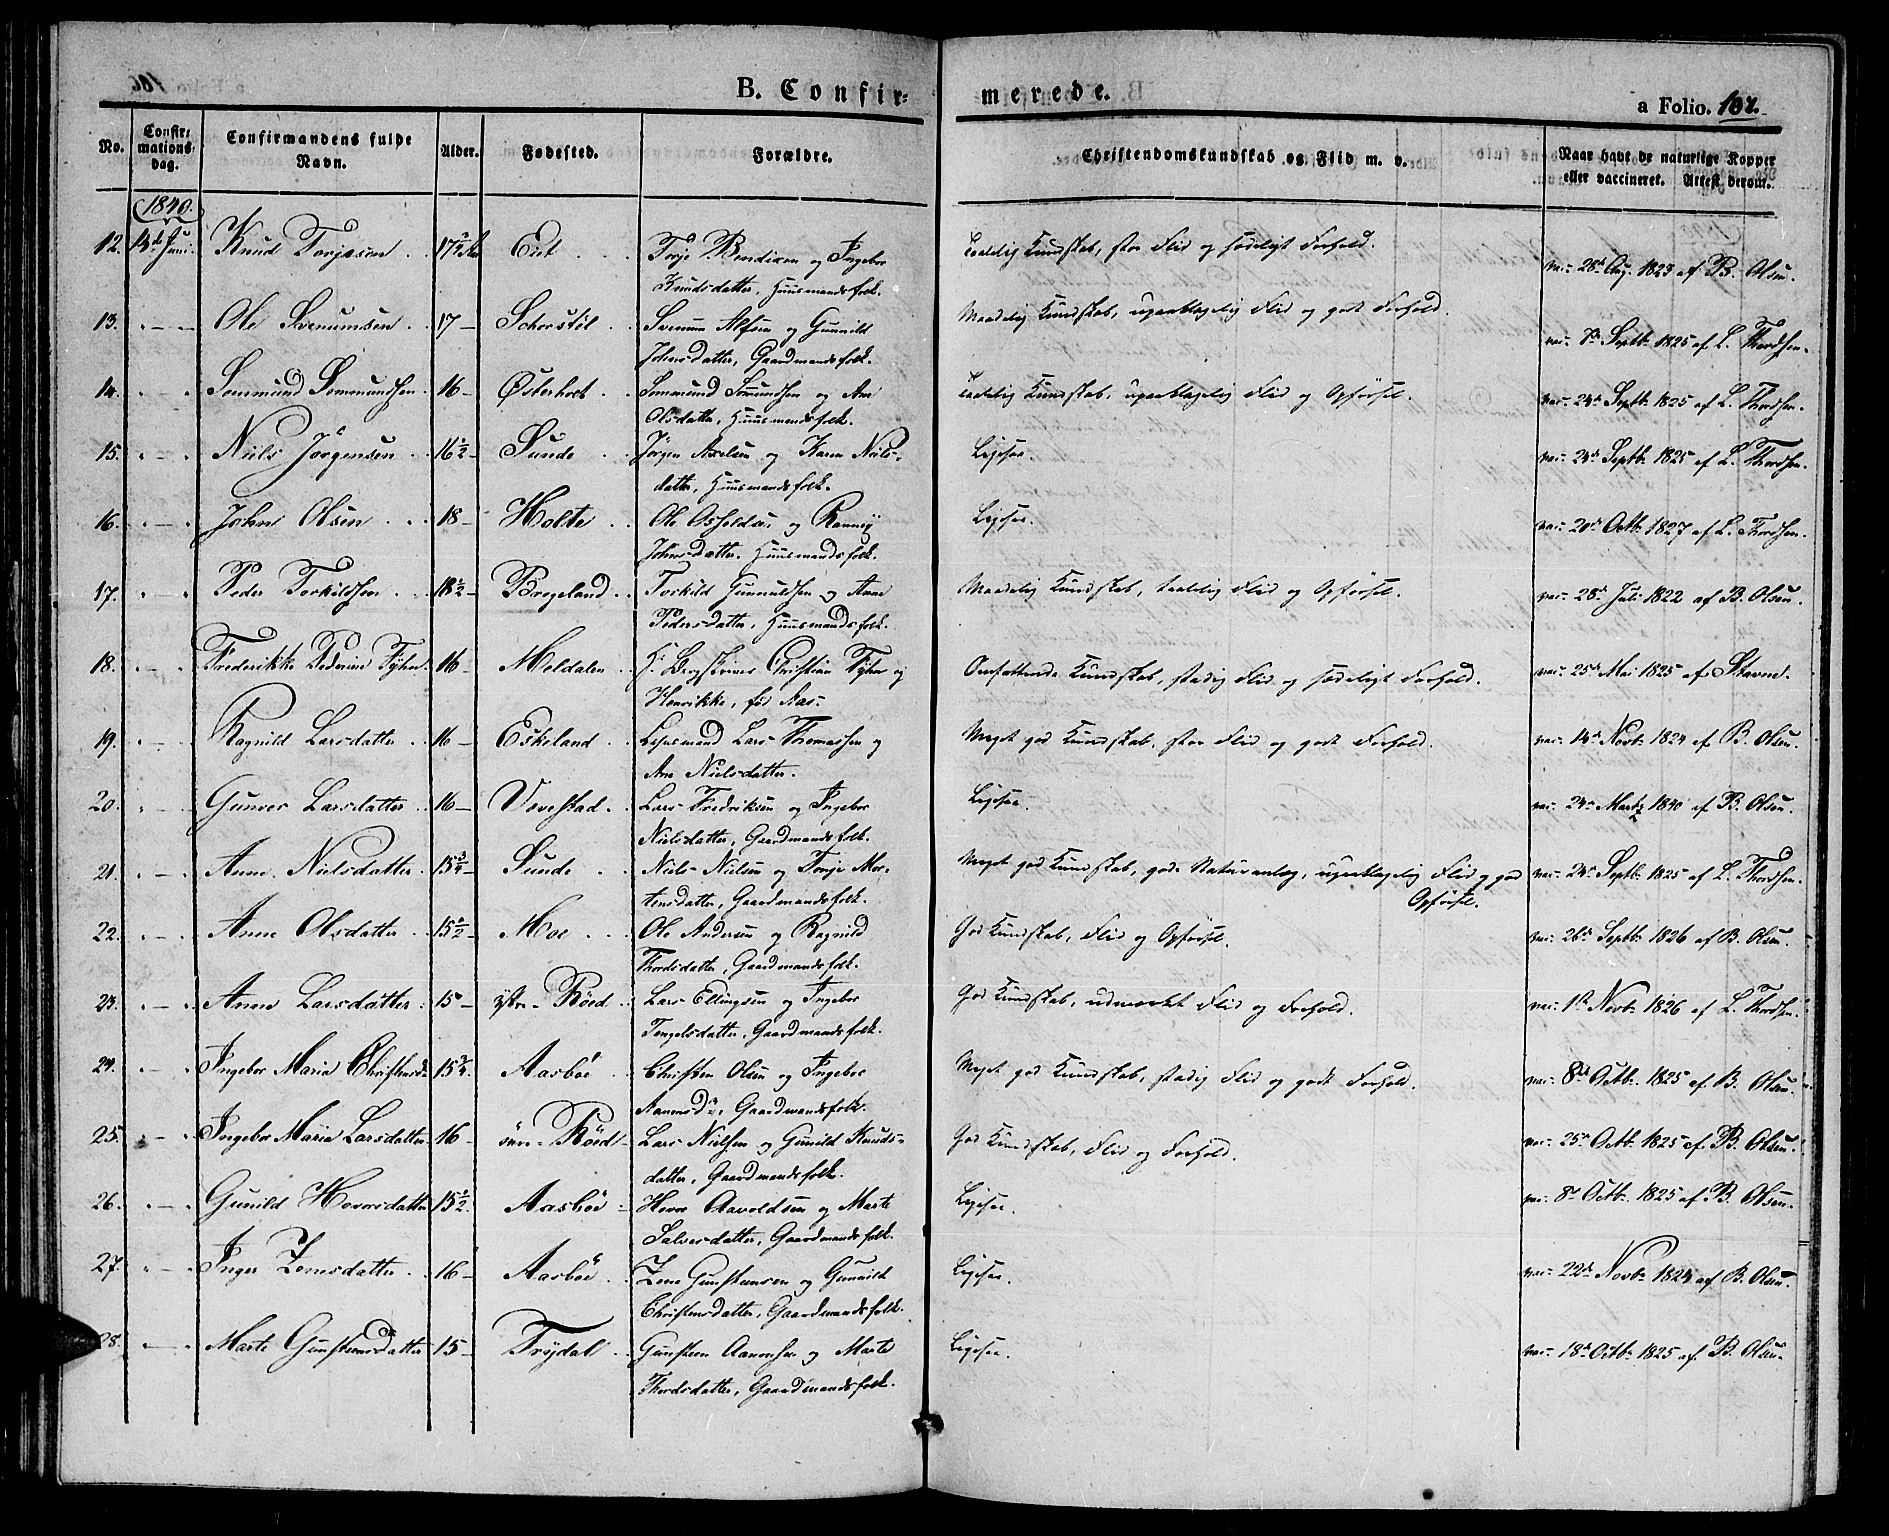 B. Confir=
merede.
a Folio. 107.
No.
Confir=
mations=
dag.
Confirmandens fulde
Navn.
Alder.
Fødested.
Forældre.
Christendomskundskab og Flid m. v.
Naar havt de naturlige Kopper
eller vaccineret. Attest derom.
1840.
12. 14de Juni. Knud Torjesen 17½ Eiet Torje Bendixen og Ingebor
Knudsdatter, Huusmandsfolk.
Taalelig Kundskab, stor Flid og sædeligt Forhold.
vac. 28de Aug. 1823 af B. Olsen.
13. Ole Svenumsen 17 Svenum Alfsen og Gunnild
Johnsdatter, Gaardmandsfolk.
Maadelig Kundskab, uaabladelig Flid og godt Forhold.
vac. Septb. 1825 af L. Thordsen.
14. Sommund Sommundsen 16 Østerholt Sommund Somundsen og Ane
Olsdatter, Huusmandsfolk.
Taalelig Kundskab, uaabladelig Flid og Opførsel.
vac. 24de Septb. 1825 af L. Thordsen.
15. Niels Jörgensen 16½ Sunde Jörgen Axelsen og Karen Niels-
datter, Huusmandsfolk.
Ligesaa.
vac. 24de Septb. 1825 af L. Thordsen.
16. John Olsen 18 Holte Ole og
Johnsdatter. Huusmandsfolk.
Ligesaa.
vac. 20de Octb. 1827 af L. Thordsen.
17. Peder Torkildsen 18½ Brogeland Torkild Gunnuldsen og Anne
Pedersdatter, Huusmandsfolk.
Maadelig Kundskab, taalelig Flid og Opførsel.
vac. 28de Juli 1822 af B. Olsen.
18. Frederikke Pederine Fyhn 16 Moldalen Hr. Christian Fyhn og
Henrikke, fød Aas.
Omfattende Kundskab, stadig Flid og sædeligt Forhold.
vac. 25de Mai 1825 af Stavne.
19. Ragnild Larsdatter 16 Eskeland Lensmand Lars Thomassen og
Ane Nielsdatter.
Meget god Kundskab, stor Flid og godt Forhold.
vac. 14de Novb. 1824 af B. Olsen.
20. Gunvor Larsdatter 16 Vovestad Lars Fredriksen og Ingebor
Nielsdatter, Gaardmandsfolk.
Ligesaa.
vac. 24de Martz 1840 af B. Olsen.
21. Anne Nielsdatter 15¾ Sunde Niels Nielsen og Tonje Mor-
tensdatter, Gaardmandsfolk.
Meget god Kundskab, gode Naturanlæg, uaabladelig Flid og god
Opførsel.
vac. 24de Septb. 1825 af L. Thordsen.
22. Anne Olsdatter 15½ Moe Ole Andersen og Ragnild
Thordsdatter, Gaardmandsfolk.
God Kundskab, Flid og Opførsel.
vac. 26de Septb. 1826 af B. Olsen.
23. Anne Larsdatter 15 Røed Lars Ellingsen og Ingebor
Tengelsdatter, Gaardmandsfolk.
God Kundskab, udmærket Flid og Forhold.
vac. 1ste Novb. 1826 af L. Thordsen.
24. Ingebor Maria Christensd. 15¾ Aasböe Christen Olsen og Ingebor
Aanonsdr., Gaardmandsfolk.
Meget god Kundskab, stadig Flid og godt Forhold.
vac. 8de Octb. 1825 af B. Olsen.
25. Ingebor Maria Larsdatter 16 Røed Lars Nielsen og Gunild Knuds-
datter, Gaardmandsfolk.
God Kundskab, Flid og Forhold.
vac. 25de Octb. 1825 af B. Olsen.
26. Gunild Hovorsdatter 15½ Aasböe Hovor Aavoldsen og Marte
Salvesdatter, Gaardmandsfolk.
Ligesaa.
vac. 8de Octb. 1825 af B. Olsen.
27. Inger Zenesdatter 16 Aasböe Zene Gunstensen og Gunnild
Christensdatter, Gaardmandsfolk.
Ligesaa.
vac. 22de Novb. 1824 af B. Olsen.
28. Marte Gunstensdatter 15 Frÿdal Gunsteen Aanonsen og Marte
Thordsdatter, Gaardmandsfolk.
Ligesaa.
vac. 18de Octb. 1825 af B. Olsen.